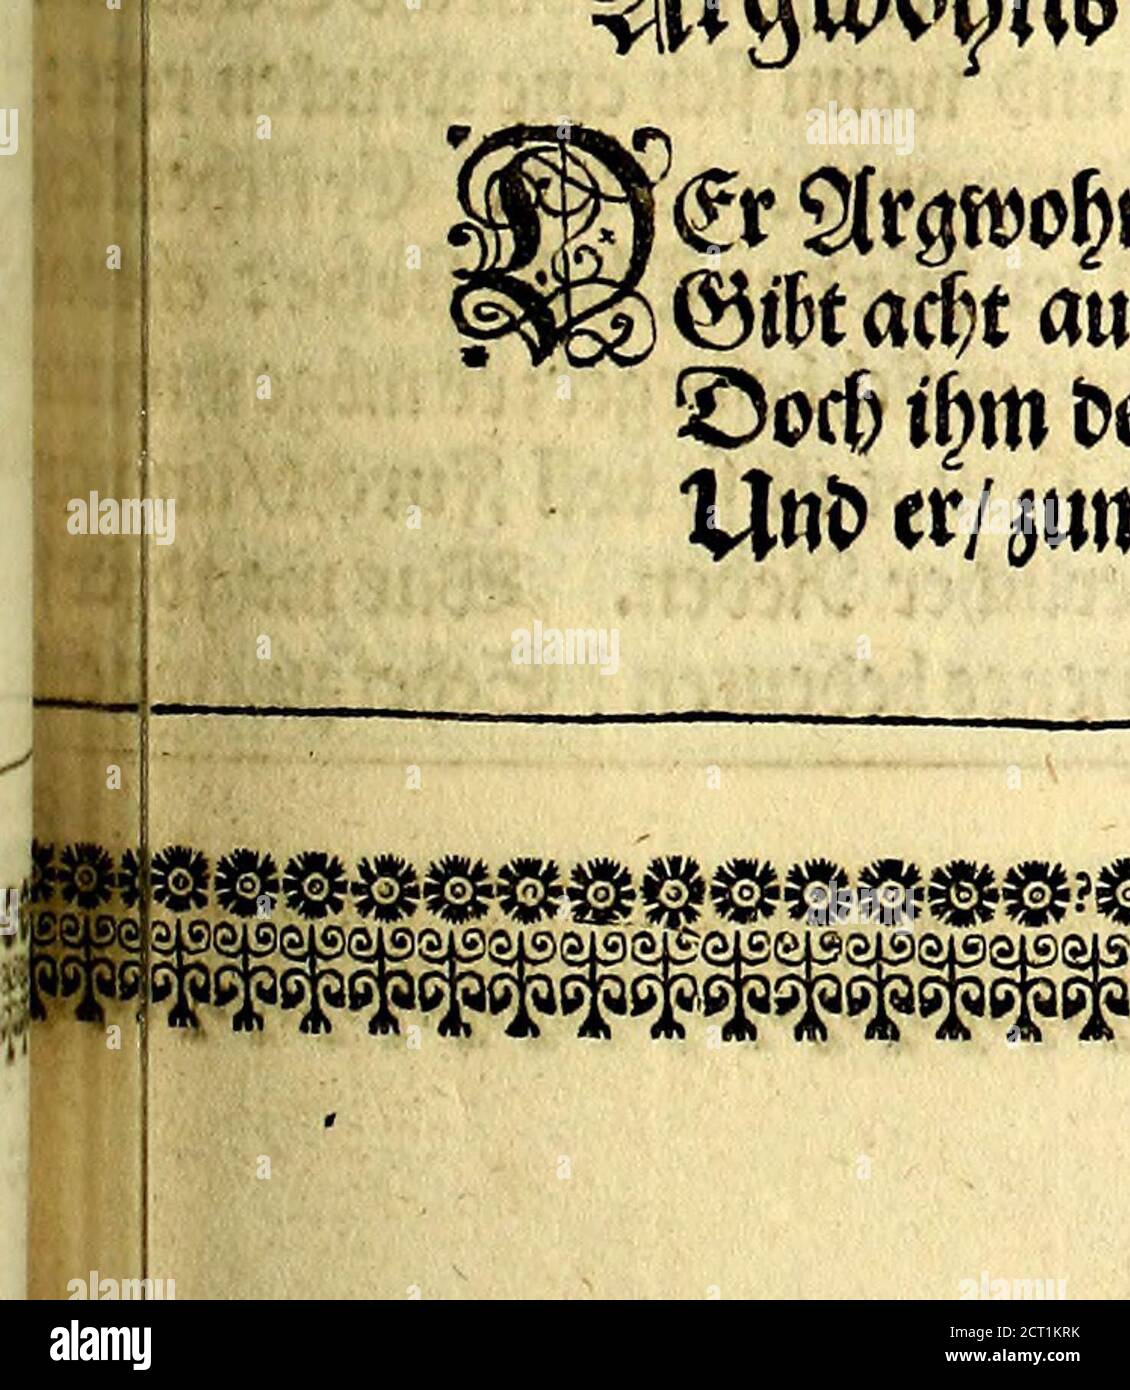 Argwohns
DEr Argwohn
Gibt acht au
Doch ihm de
Und er/ zum
alamy
Image ID: 2CT1KRK
www.alamy.com